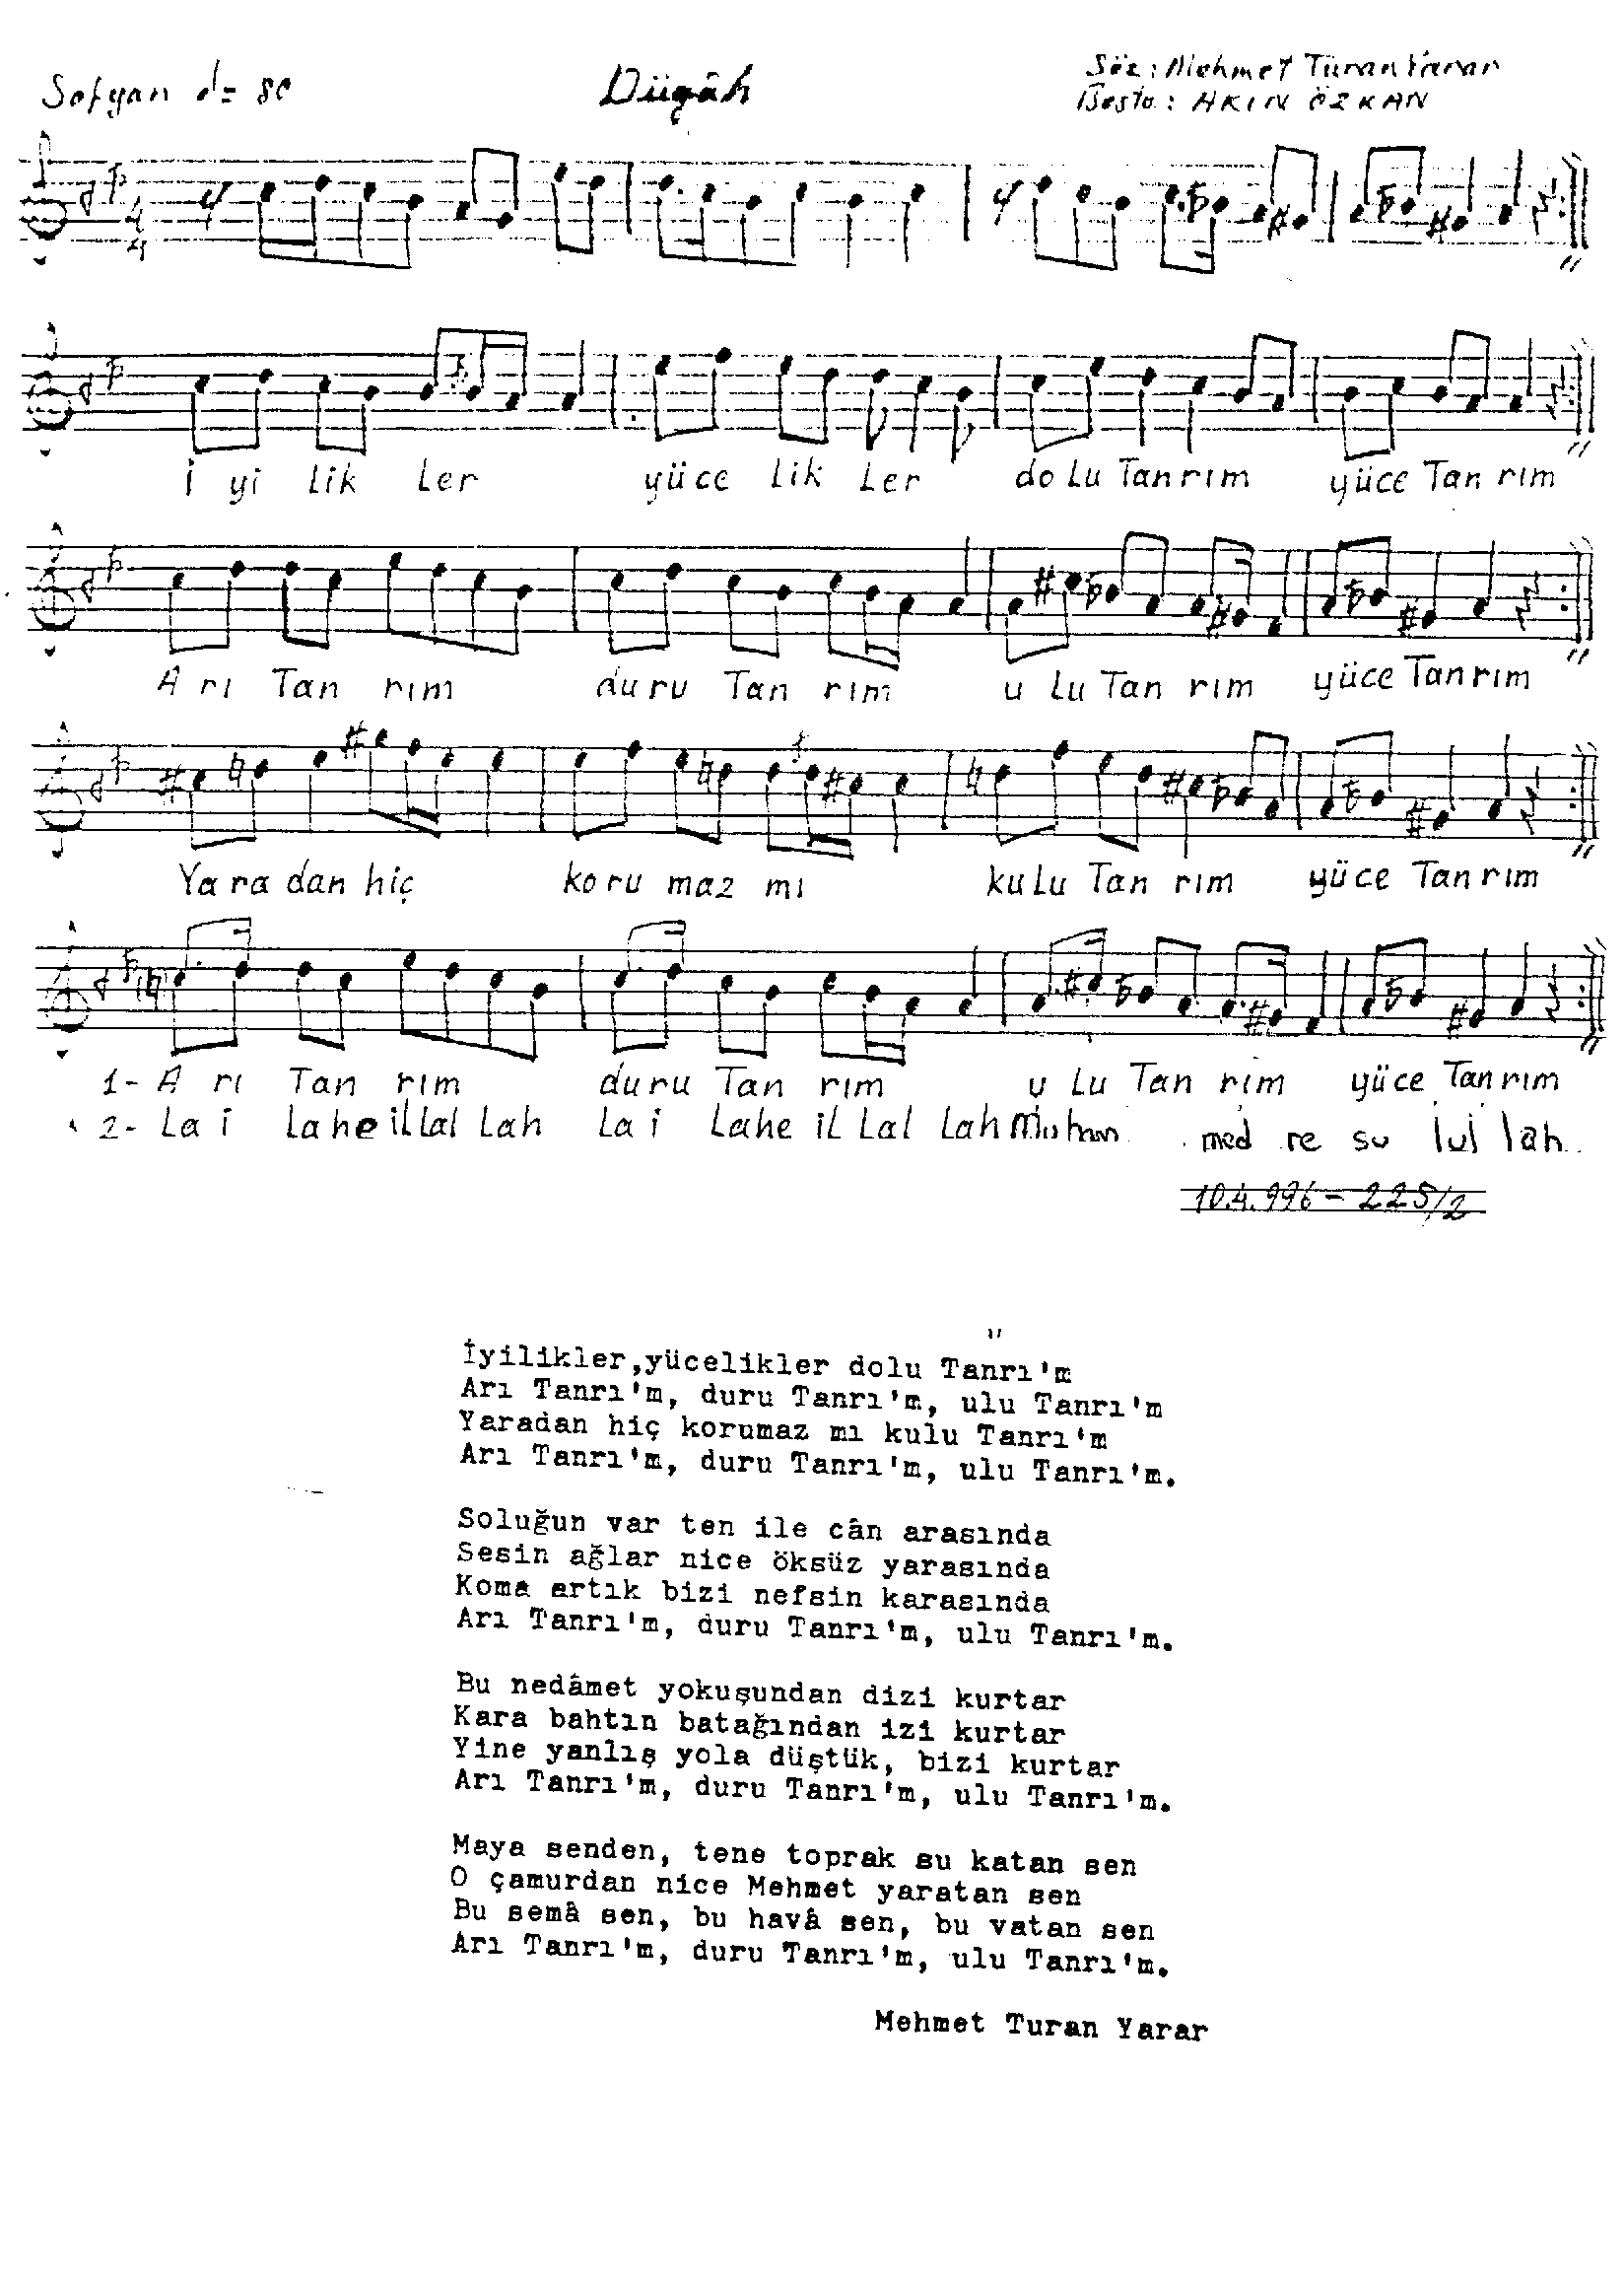 Sofyan ♩= 80
Dügâh
Söz: Mehmet Turan Yarar
Beste: AKIN ÖZKAN
4
4
İ yi lik ler yüce lik ler do lu Tanrım yüce Tanrım
A rı Tan rım duru Tan rım u lu Tan rım yüce Tanrım
Ya ra dan hiç koru maz mı kulu Tan rım yüce Tanrım
1- A rı Tan rım duru Tan rım u lu Tan rım yüce Tanrım
2- La i lahe illal lah la i lahe il lal lah Muham med re su lul lah
10.4.996 - 225/2
İyilikler,yücelikler dolu Tanrı'm
Arı Tanrı'm, duru Tanrı'm, ulu Tanrı'm
Yaradan hiç korumaz mı kulu Tanrı'm
Arı Tanrı'm, duru Tanrı'm, ulu Tanrı'm.
Soluğun var ten ile cân arasında
Sesin ağlar nice öksüz yarasında
Koma artık bizi nefsin karasında
Arı Tanrı'm, duru Tanrı'm, ulu Tanrı'm.
Bu nedâmet yokuşundan dizi kurtar
Kara bahtın batağından izi kurtar
Yine yanlış yola düştük, bizi kurtar
Arı Tanrı'm, duru Tanrı'm, ulu Tanrı'm.
Maya senden, tene toprak su katan sen
O çamurdan nice Mehmet yaratan sen
Bu semâ sen, bu havâ sen, bu vatan sen
Arı Tanrı'm, duru Tanrı'm, ulu Tanrı'm.
Mehmet Turan Yarar